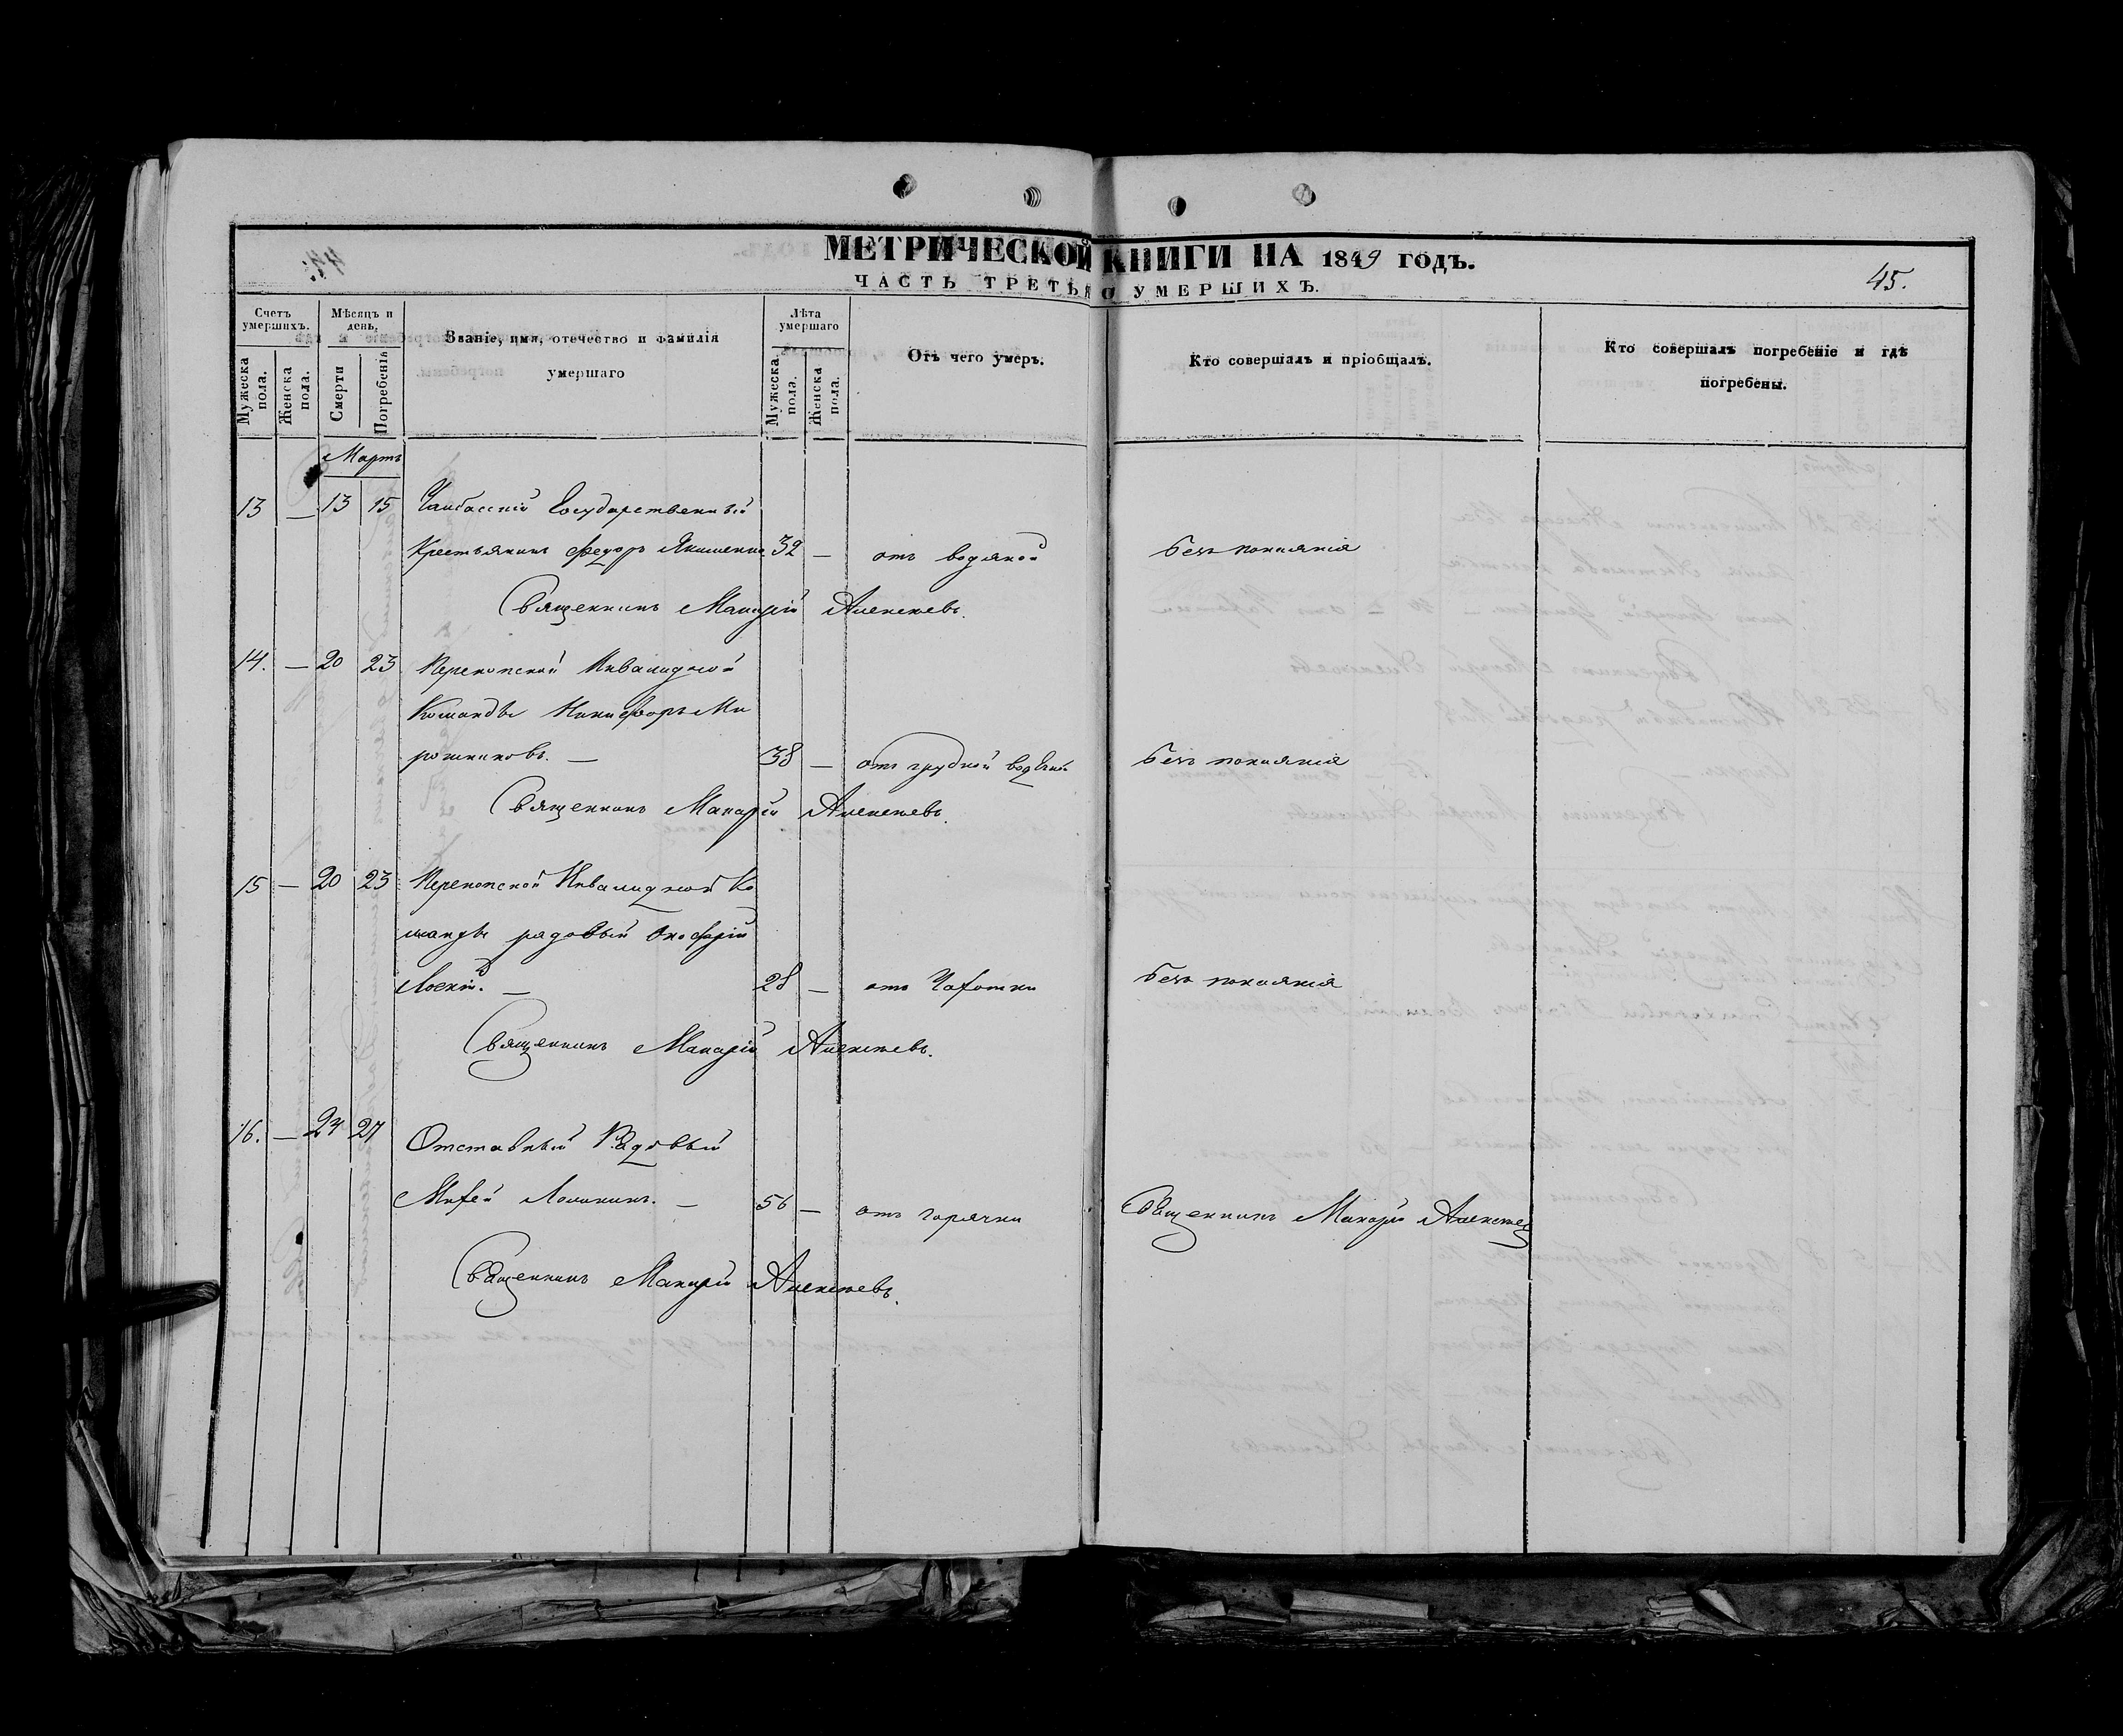 МЕТРИЧЕСКОЙ КНИГИ НА 1849 ГОДЪ.
ЧАСТЬ ТРЕТЬЯ О УМЕРШИХЪ.
45.
Счетъ умершихъ.
Мужеска пола.
Женска пола.
Мѣсяцъ и день.
Смерти
Погребенія
Званіе, имя, отечество и фамилія
умершаго
Лѣта умершаго
Мужеска пола.
Женска пола.
Отъ чего умеръ.
Кто совершалъ и пріобщалъ.
Кто совершалъ погребеніе и гдѣ
погребены.
Мартъ
13 — 13 15 Государственный
Крестьянинъ Федоръ Якименко 32 — отъ водяной безъ покаянія
Священникъ Макарій Алексѣевъ.
14. — 20 23 Перекопской Инвалидной
Команды Никифоръ Ми
рошниковъ. — 38 — отъ грудной водяной безъ покаянія
Священникъ Макарій Алексѣевъ.
15 — 20 23 Перекопской Инвалидной Ко
манды рядовый Онофрій
28 — отъ Чахотки безъ покаянія
Священникъ Макарій Алексѣевъ.
16. — 24 27 Отставный Рядовый
56 — отъ горячки Священникъ Макарій Алексѣев
Священникъ Макарій Алексѣевъ.